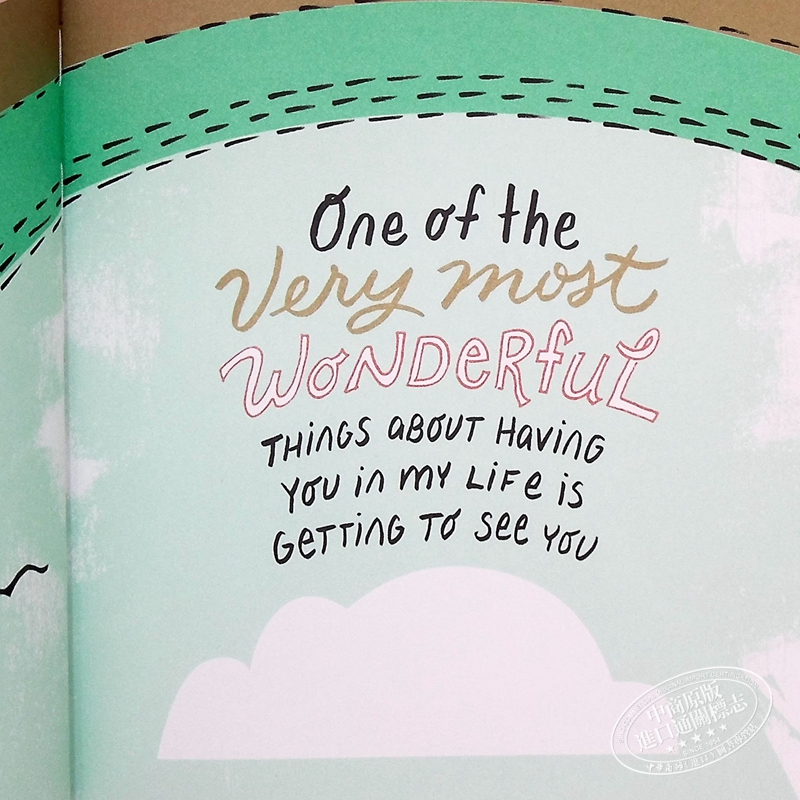 One of the
Very most
WONDERfUL
THiNGS aBOUT Having
YOU in MY LiFe iS
GeTTiNG TO See YOU
中商原版
進口通關標志
SINCE 1984